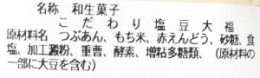 名称 和生菓子
こだわり塩豆大福
原材料名 つぶあん、もち米、赤えんどう、砂糖、食
塩、加工澱粉、重曹、酵素、増粘多糖類、（原材料の
一部に大豆を含む）